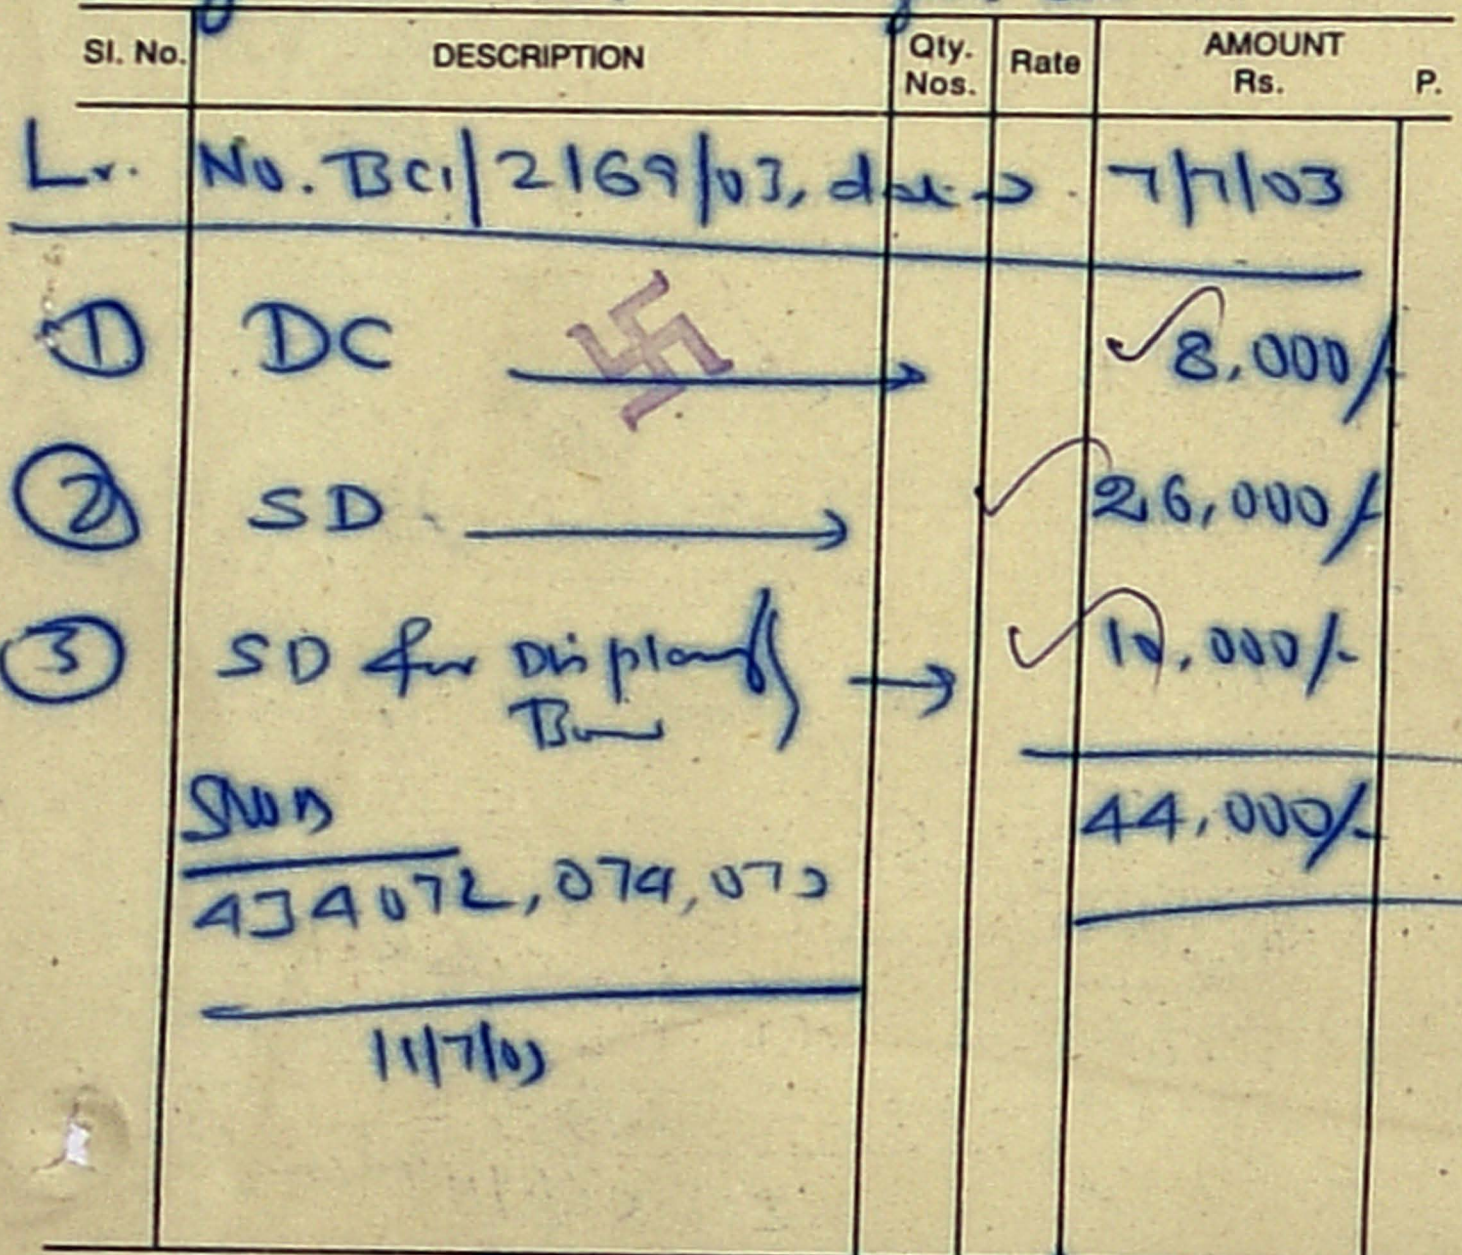 Sl. No. DESCRIPTION Qty. Nos. Rate AMOUNT Rs. P.
Lr. No. BC1/2169/03, date 7/7/03
1 DC → 8,000/-
2 SD → 26,000/-
3 SD for Display → 10,000/-
44,000/-
434072, 074, 073
11/7/03